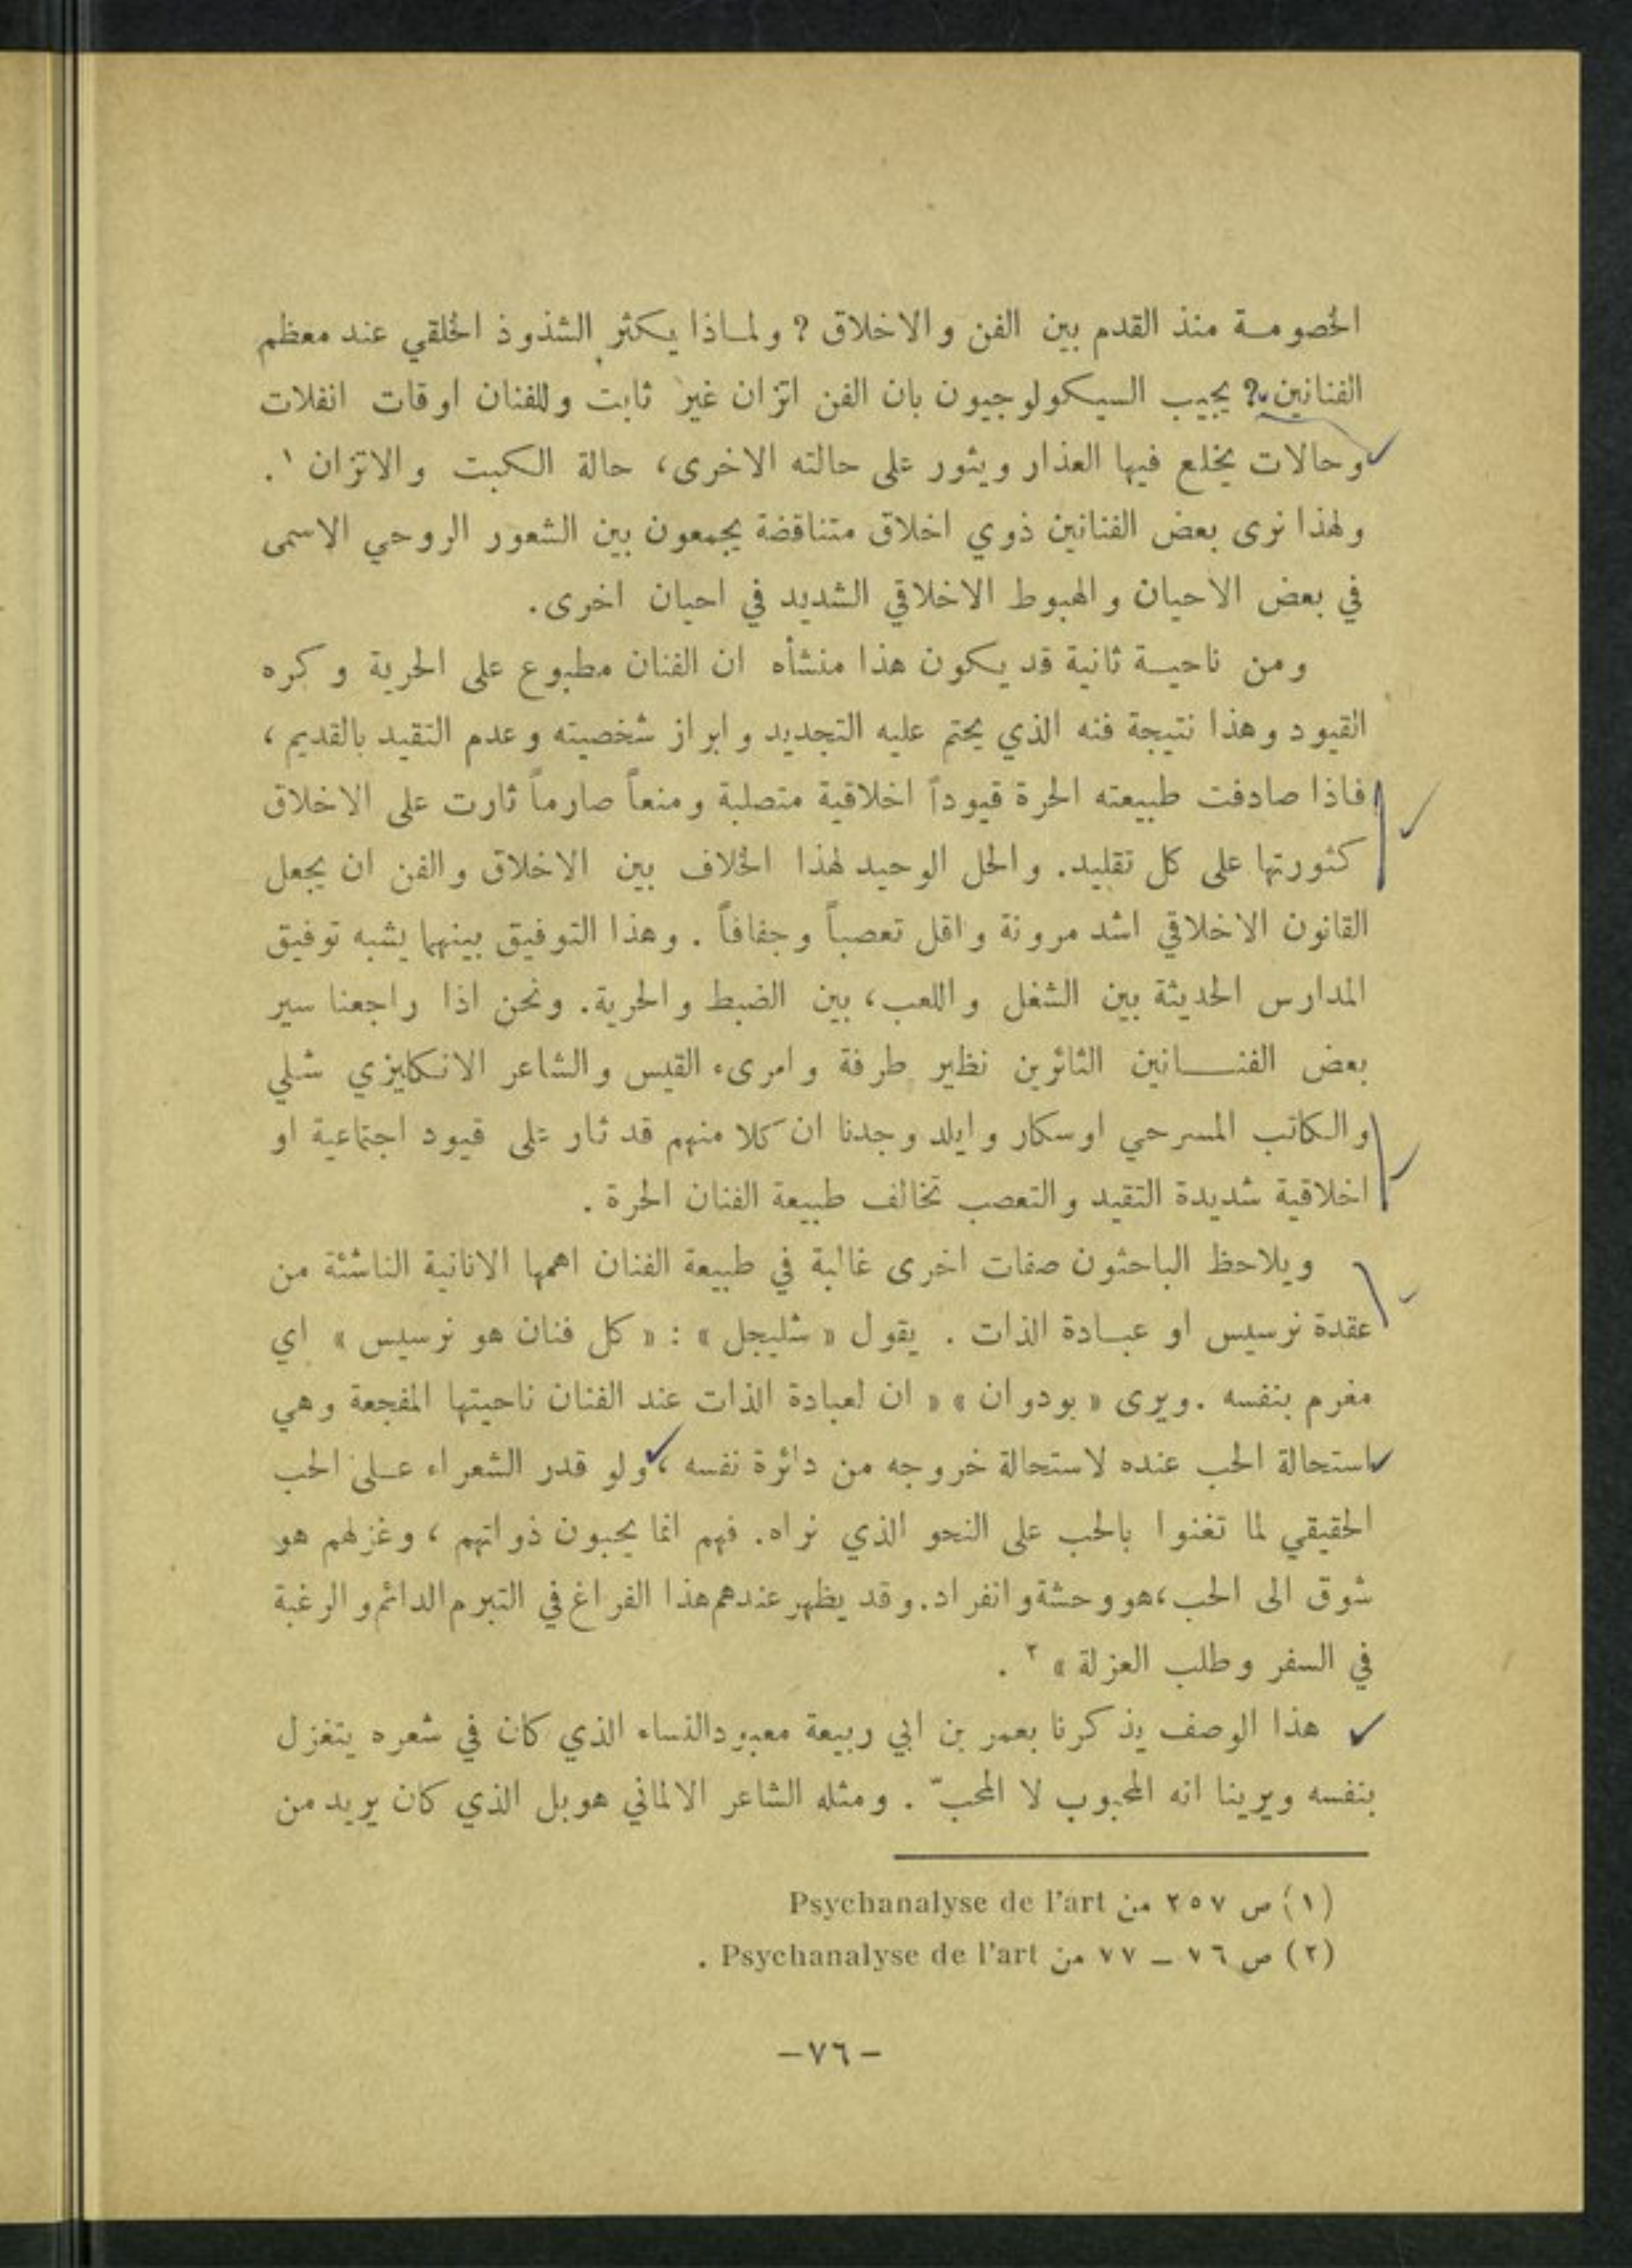 الخصومة منذ القدم بين الفن والاخلاق ? ولماذا يكثر الشذوذ الخلقي عند معظم
الفنانين ? يجيب السيكولوجيون بان الفن اتزان غير ثابت وللفنان اوقات انفلات
وحالات يخلع فيها العذار ويثور على حالته الاخرى، حالة الكبت والاتزان ١.
ولهذا نرى بعض الفنانين ذوي اخلاق متناقضة يجمعون بين الشعور الروحي الاسمى
في بعض الاحيان والهبوط الاخلاقي الشديد في احيان اخرى.
ومن ناحية ثانية قد يكون هذا منشأه ان الفنان مطبوع على الحرية وكره
القيود وهذا نتيجة فنه الذي يحتم عليه التجديد وابراز شخصيته وعدم التقيد بالقديم،
فاذا صادفت طبيعته الحرة قيوداً اخلاقية متصلبة ومنعاً صارماً ثارت على الاخلاق
كثورتها على كل تقليد. والحل الوحيد لهذا الخلاف بين الاخلاق والفن ان يجعل
القانون الاخلاقي اشد مرونة واقل تعصباً وجفافاً. وهذا التوفيق بينهما يشبه توفيق
المدارس الحديثة بين الشغل واللعب، بين الضبط والحرية. ونحن اذا راجعنا سير
بعض الفنانين الثائرين نظير طرفة وامرىء القيس والشاعر الانكليزي شلي
والكاتب المسرحي اوسكار وايلد وجدنا ان كلا منهم قد ثار على قيود اجتماعية او
اخلاقية شديدة التقيد والتعصب تخالف طبيعة الفنان الحرة.
ويلاحظ الباحثون صفات اخرى غالبة في طبيعة الفنان اهمها الانانية الناشئة من
عقدة نرسيس او عبادة الذات . يقول « شليجل » : « كل فنان هو نرسيس » اي
مغرم بنفسه . ويرى « بودوان » « ان لعبادة الذات عند الفنان ناحيتها المفجعة وهي
استحالة الحب عنده لاستحالة خروجه من دائرة نفسه ، ولو قدر الشعراء على الحب
الحقيقي لما تغنوا بالحب على النحو الذي نراه. فهم انما يحبون ذواتهم ، وغزلهم هو
شوق الى الحب، هو وحشة وانفراد. وقد يظهر عندهم هذا الفراغ في التبرم الدائم والرغبة
في السفر وطلب العزلة » ٢ .
هذا الوصف يذكرنا بعمر بن ابي ربيعة معبود النساء الذي كان في شعره يتغزل
بنفسه ويرينا انه المحبوب لا المحبّ . ومثله الشاعر الالماني هوبل الذي كان يريد من
(١) ص ٢٥٧ من Psychanalyse de l'art
(٢) ص ٧٦ – ٧٧ من Psychanalyse de l'art .
–٧٦–